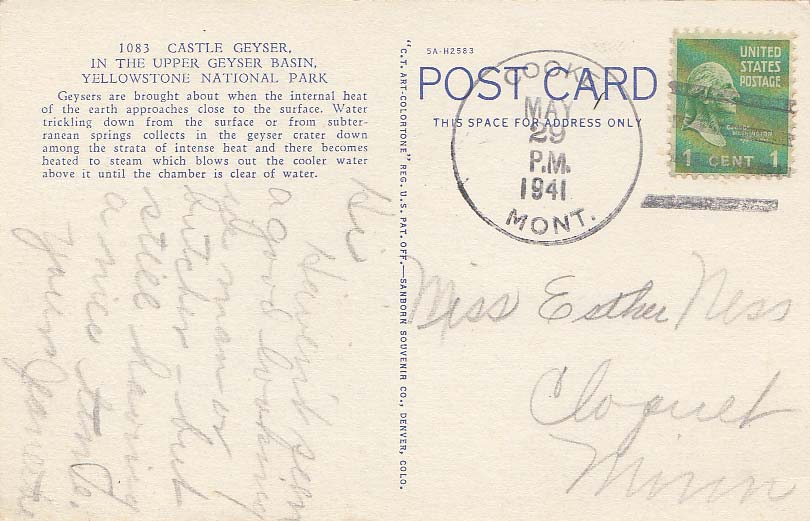 1083 CASTLE GEYSER,
IN THE UPPER GEYSER BASIN,
YELLOWSTONE NATIONAL PARK
Geysers are brought about when the internal heat
of the earth approaches close to the surface. Water
trickling down from the surface or from subter-
ranean springs collects in the geyser crater down
among the strata of intense heat and there becomes
heated to steam which blows out the cooler water
above it until the chamber is clear of water.
Hi
Haven't seen
a good looking
man or
butcher - but
still having
a nice time.
Yours
"C.T. ART-COLORTONE" REG. U.S. PAT. OFF.—SANBORN SOUVENIR CO., DENVER, COLO.
5A-H2583
POST CARD
THIS SPACE FOR ADDRESS ONLY
COOKE
MAY
29
P.M.
1941
MONT.
UNITED
STATES
POSTAGE
GEORGE WASHINGTON
1 CENT 1
Miss Esther Ness
Cloquet
Minn